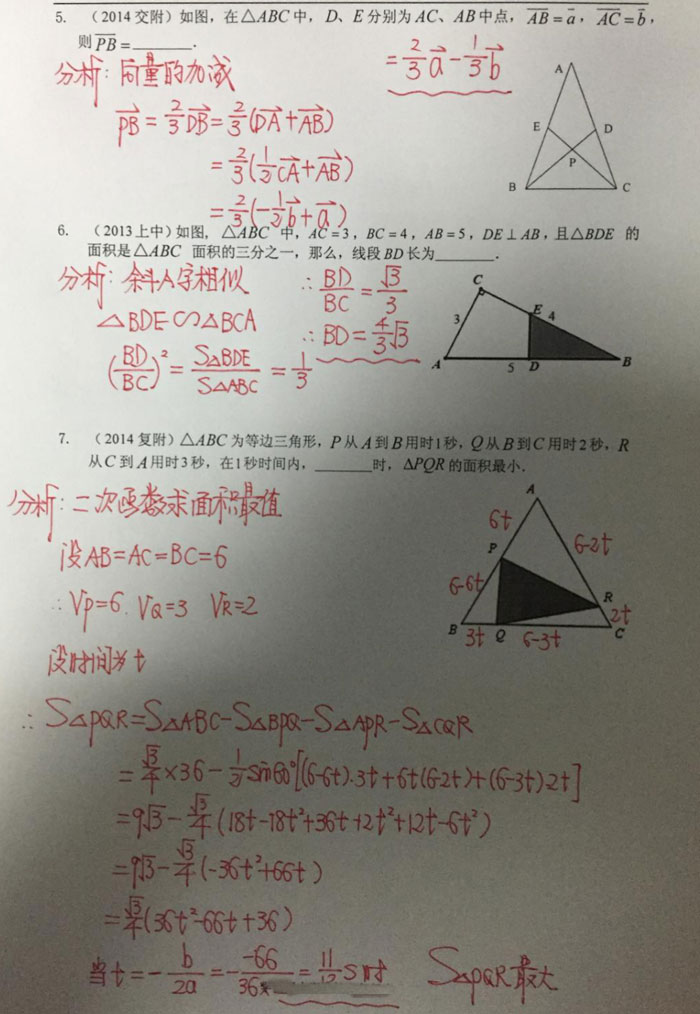 5. （2014 交附）如图，在△ABC 中，D、E 分别为 AC、AB 中点，AB = a，AC = b，
则 PB = ______．
分析：向量的加减
PB = 2/3 DB = 2/3 (DA + AB)
= 2/3 (1/2 CA + AB)
= 2/3 (-1/2 b + a)
= 2/3 a - 1/3 b
A
E
D
P
B
C
6. （2013 上中）如图，△ABC 中，AC = 3，BC = 4，AB = 5，DE ⊥ AB，且△BDE 的
面积是△ABC 面积的三分之一，那么，线段 BD 长为______．
分析：斜A字相似
△BDE∽△BCA
(BD/BC)² = S△BDE/S△ABC = 1/3
∴ BD/BC = √3/3
∴ BD = 4/3 √3
C
3
E 4
A
5 D
B
7. （2014 复附）△ABC 为等边三角形，P 从 A 到 B 用时1秒，Q 从 B 到 C 用时 2 秒，R
从 C 到 A 用时 3 秒，在 1 秒时间内，______时，△PQR 的面积最小．
分析：二次函数求面积最值
设AB=AC=BC=6
∴ VP=6. VQ=3 VR=2
设时间为t
A
6t
6-2t
P
6-6t
R
2t
B 3t Q 6-3t C
∴ S△PQR=S△ABC-S△BPQ-S△APR-S△CQR
= √3/4 ×36 - 1/2 sin60°[(6-6t)·3t+6t(6-2t)+(6-3t)2t]
= 9√3 - √3/4 (18t-18t²+36t+2t²+12t-6t²)
= 9√3 - √3/4 (-36t²+66t)
= √3/4 (36t²-66t+36)
当 t = - b/2a = - -66/36× = 11/12 s时 S△PQR最大